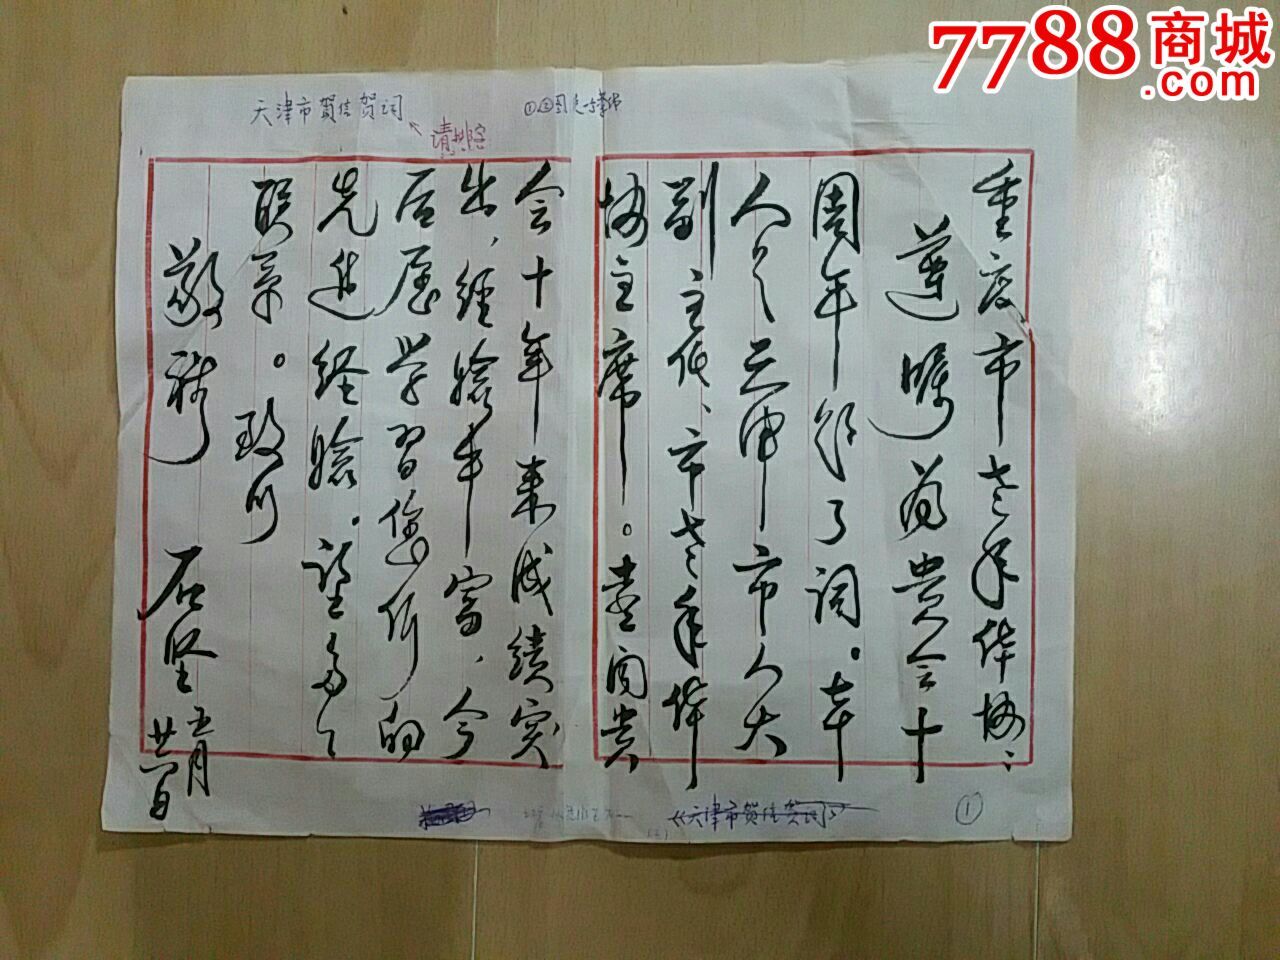 7788商城
.com
天津市贺信贺词
重庆市老年体协：
遵嘱为贵会十
周年
了词。
人
天津市人大
副主任、市老年体
协主席。
贵
会十年来成绩突
出，经验丰富，今
后愿学习您们的
先进经验。望多多
联系。致以
敬礼
石坚
五月
《天津市贺信贺词》
①